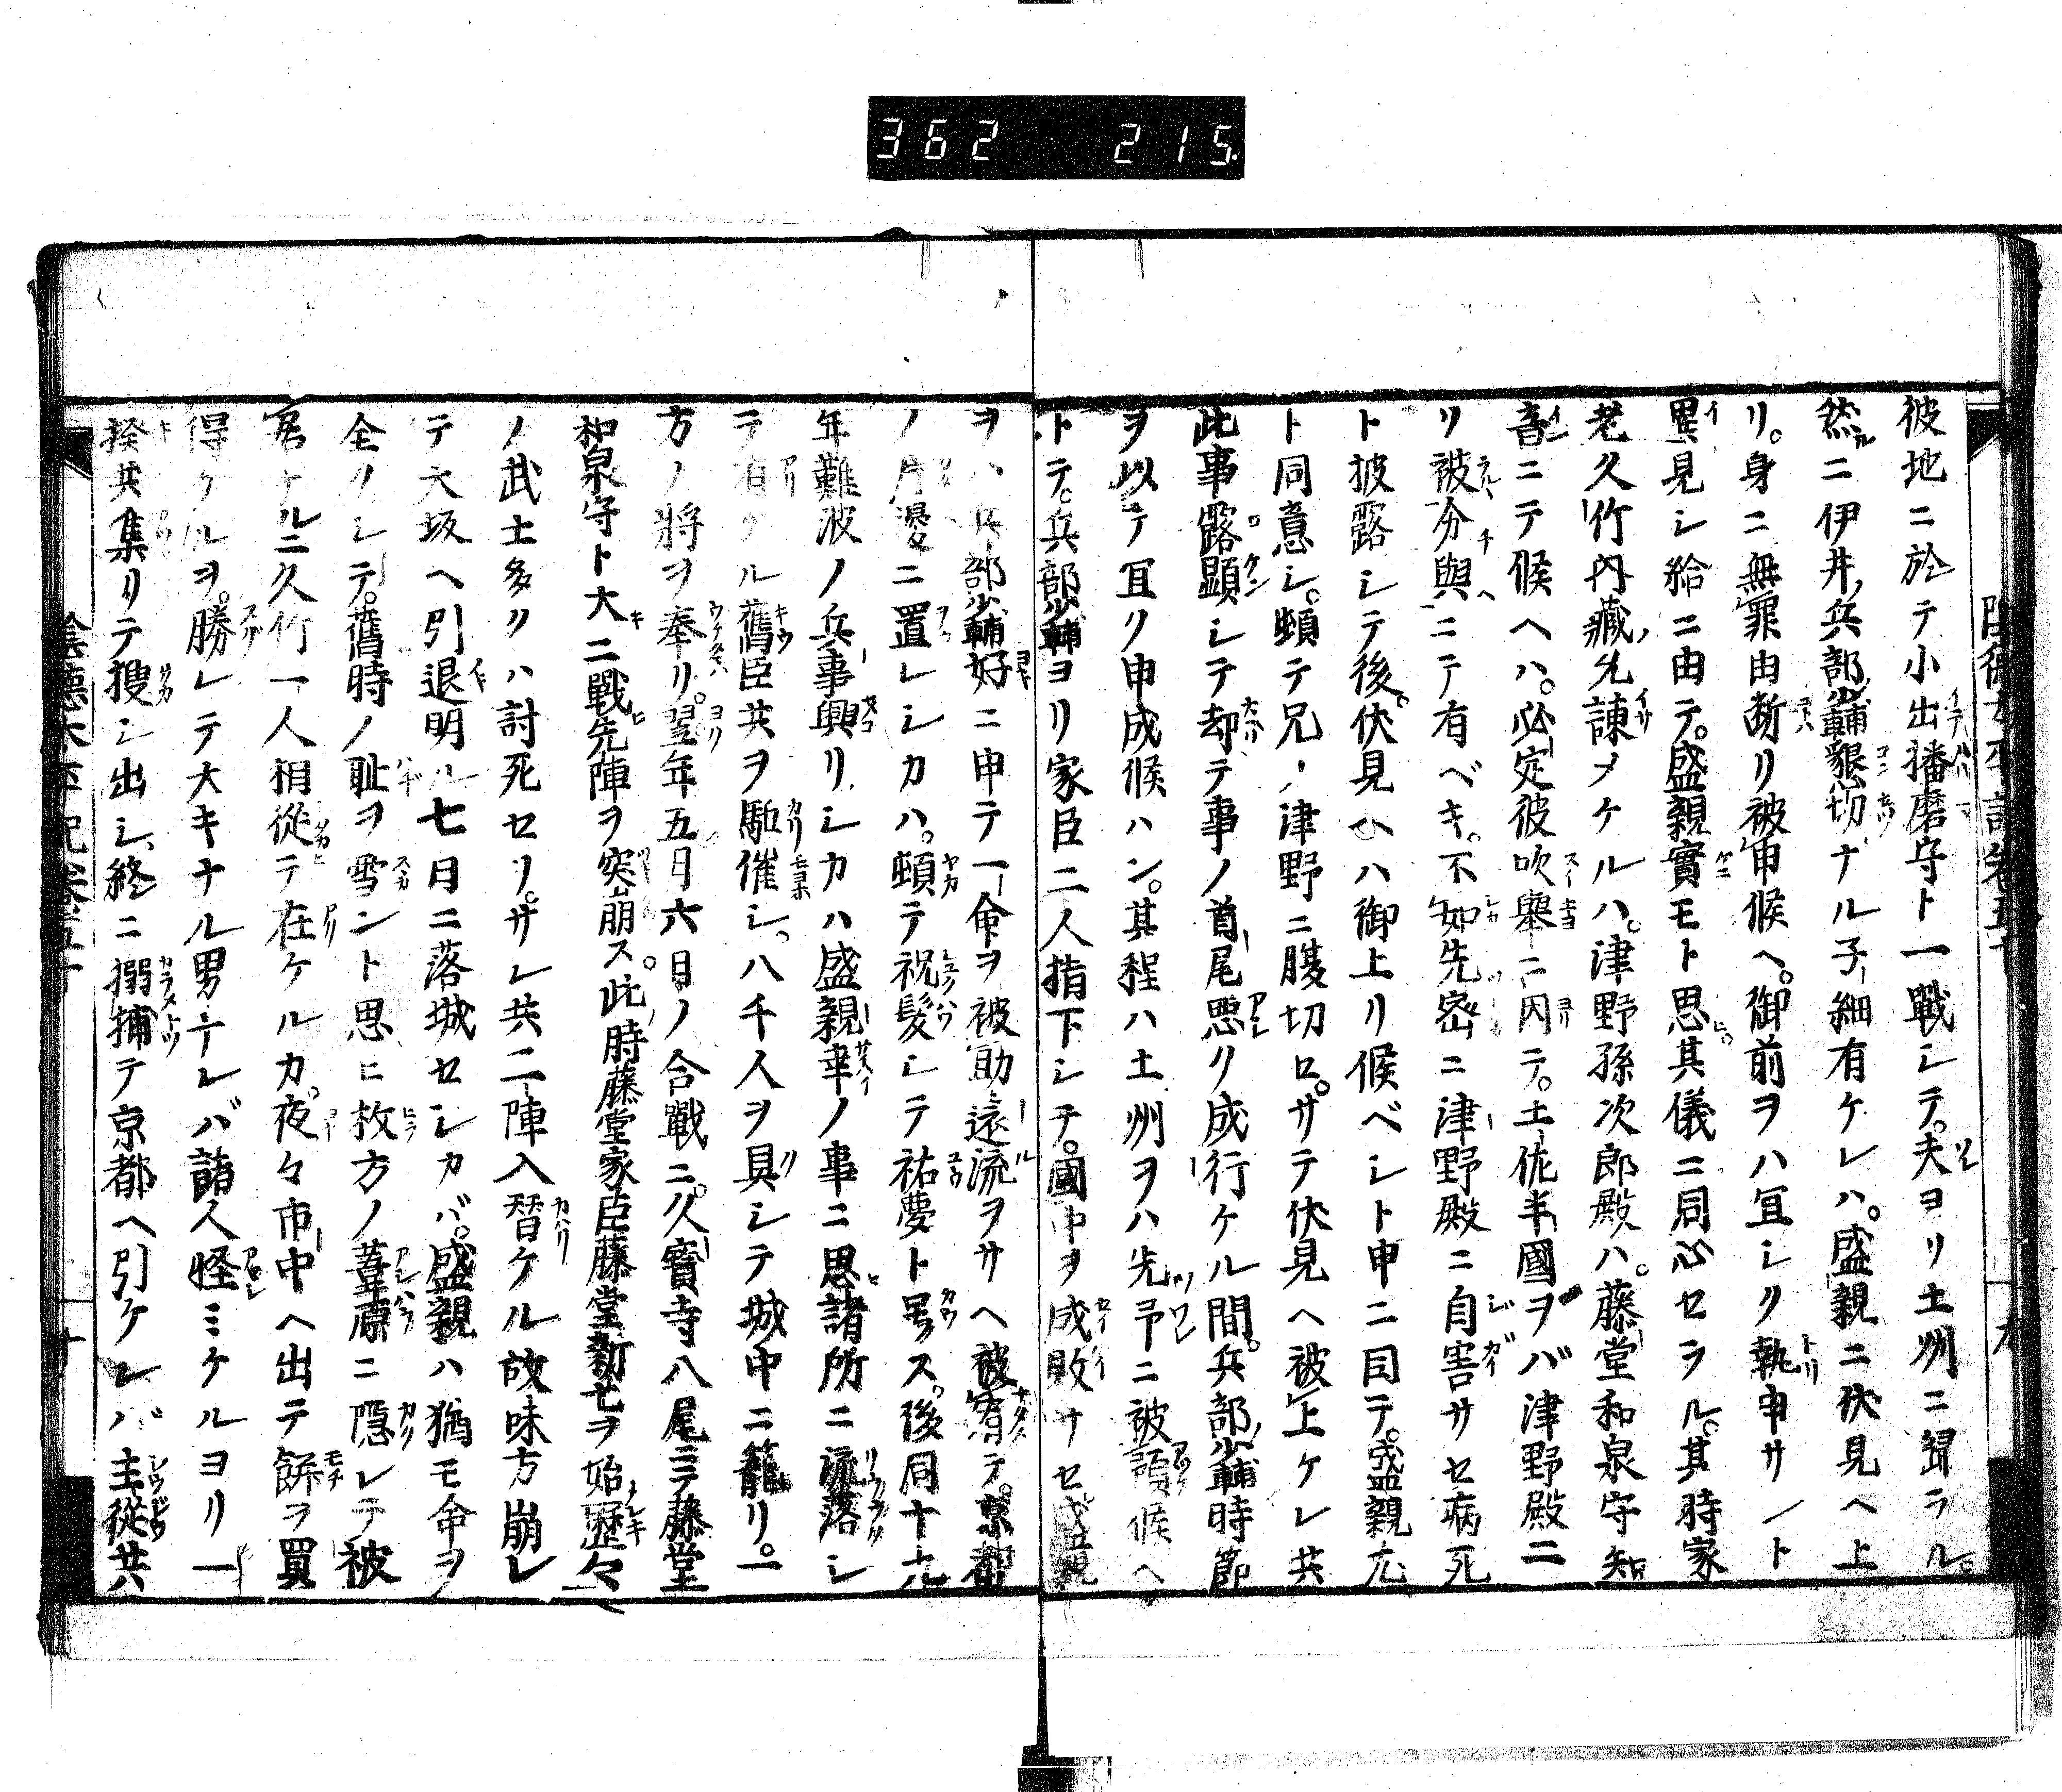 362 215
彼地ニ於テ小出播磨守ト一戰シテ。夫ヨリ土州ニ歸ラル。
然ルニ伊井兵部少輔懇切ナル子細有ケレハ。盛親ニ伏見ヘ上
リ。身ニ無罪由斷リ被申候ヘ。御前ヲハ宜シク執申サント
異見シ給ニ由テ。盛親實モト思其儀ニ同心セラル。其時家
老久竹内藏允諫メケルハ。津野孫次郎殿ハ。藤堂和泉守知
音ニテ候ヘハ。必定彼吹舉ニ因テ。土佐半國ヲバ津野殿ニ
リ被分與ニテ有ベキ。不如先密ニ津野殿ニ自害サセ病死
ト披露シテ後。伏見ヘハ御上リ候ベシト申ニ因テ。盛親尤
ト同意シ。頓テ兄ノ津野ニ腹切ロ。サテ伏見ヘ被上ケレ共
此事露顯シテ却テ事ノ首尾悪ク成行ケル間。兵部少輔時節
ヲ以テ宜ク申成候ハン。其程ハ土州ヲハ先予ニ被預候ヘ
トテ。兵部少輔ヨリ家臣二人指下シテ。國中ヲ成敗サセ盛親
ヲハ兵部少輔好ニ申テ一命ヲ被助遠流ヲサヘ被宥テ。京都
ノ片邊ニ置レシカハ。頓テ祝髮シテ祐夢ト号ス。後同十九
年難波ノ兵事興リシカハ盛親幸ノ事ニ思諸所ニ流落シ
テ有ケル舊臣共ヲ駈催シ。八千人ヲ具シテ城中ニ籠リ。一
方ノ將ヲ奉リ。翌年五月六日ノ合戰ニ。久寳寺八尾ニテ藤堂
和泉守ト大ニ戰先陣ヲ突崩ス。此時藤堂家臣藤堂新七ヲ始歷々
ノ武士多ク八討死セリ。サレ共二陣入替ケル故味方崩レ
テ大坂ヘ引退明ル七日ニ落城セシカバ。盛親ハ猶モ命ヲ
全クシテ。舊時ノ恥ヲ雪ント思ヒ枚方ノ葦原ニ隱レテ被
居ケルニ久竹一人相從テ在ケルカ。夜々市中ヘ出テ餅ヲ買
得ケルヲ。勝レテ大キナル男ナレバ諸人怪ミケルヨリ一
揆共集リテ搜シ出シ終ニ搦捕テ京都ヘ引ケレバ主從共
陰德太平記卷五十
十